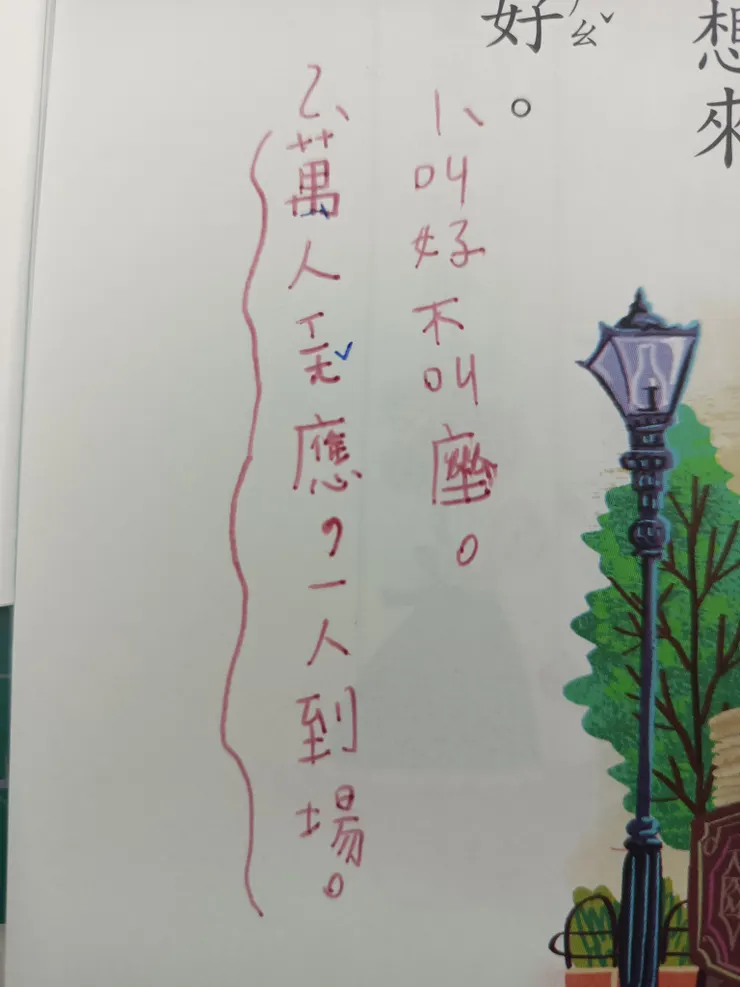 想來
好ㄠˇ。
1、叫好不叫座。
2、萬人應，一人到場。